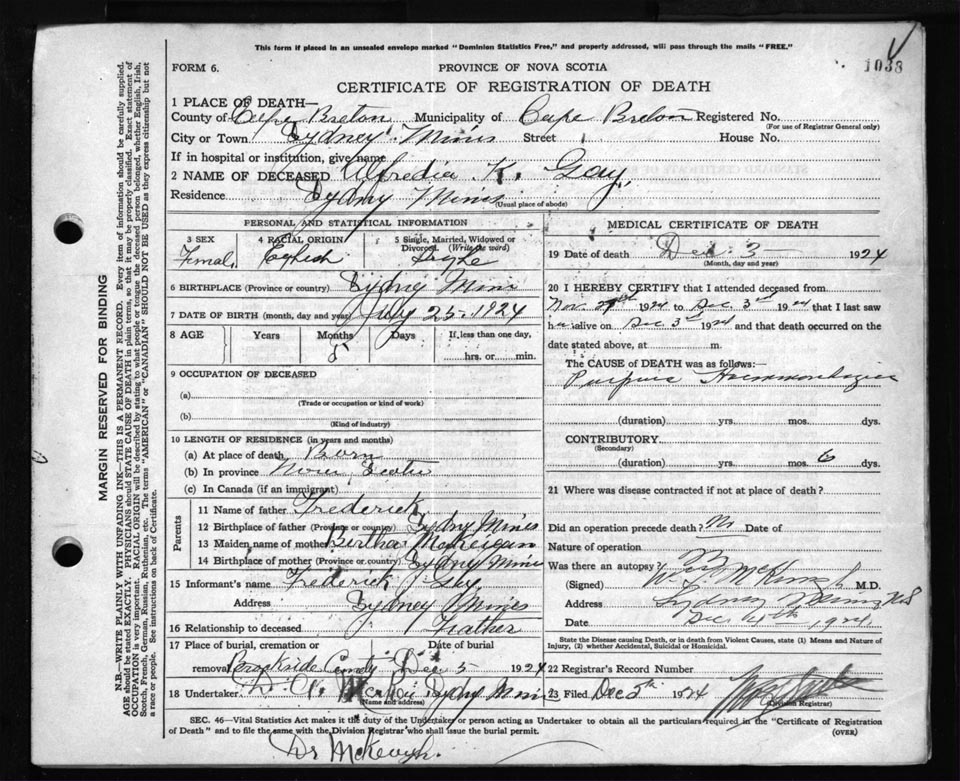 This form if placed in an unsealed envelope marked "Dominion Statistics Free," and properly addressed, will pass through the mails "FREE."
1038
FORM 6.
PROVINCE OF NOVA SCOTIA
CERTIFICATE OF REGISTRATION OF DEATH
MARGIN RESERVED FOR BINDING
N.B.—WRITE PLAINLY WITH UNFADING INK—THIS IS A PERMANENT RECORD. Every item of information should be carefully supplied.
AGE should be stated EXACTLY. PHYSICIANS should STATE CAUSE OF DEATH in plain terms, so that it may be properly classified. Exact statement of
OCCUPATION is very important. RACIAL ORIGIN will be described by stating to what people or tongue the deceased person belonged, whether English, Irish,
Scotch, French, German, Russian, Ruthenian, etc. The terms "AMERICAN" or "CANADIAN" SHOULD NOT BE USED as they express citizenship but not
a race or people. See instructions on back of Certificate.
1 PLACE OF DEATH—
County of Cape Breton Municipality of Cape Breton Registered No.
(For use of Registrar General only)
City or Town Sydney Mines Street House No.
If in hospital or institution, give name
2 NAME OF DECEASED Alfredia K. Gay
Residence Sydney Mines
(Usual place of abode)
PERSONAL AND STATISTICAL INFORMATION
3 SEX
Female
4 RACIAL ORIGIN
English
5 Single, Married, Widowed or Divorced (Write the word)
Single
6 BIRTHPLACE (Province or country) Sydney Mines
7 DATE OF BIRTH (month, day and year) July 25-1924
8 AGE Years Months Days If less than one day,
5 hrs. or min.
9 OCCUPATION OF DECEASED
(a)
(Trade or occupation or kind of work)
(b)
(Kind of industry)
10 LENGTH OF RESIDENCE (in years and months)
(a) At place of death Born
(b) In province Nova Scotia
(c) In Canada (if an immigrant)
Parents
11 Name of father Frederick
12 Birthplace of father (Province or country) Sydney Mines
13 Maiden name of mother Bertha McKeigan
14 Birthplace of mother (Province or country) Sydney Mines
15 Informant's name Frederick Gay
Address Sydney Mines
16 Relationship to deceased Father
17 Place of burial, cremation or removal Date of burial
Brookside Dec 5 1924
18 Undertaker Sydney Mines
(Name and address)
MEDICAL CERTIFICATE OF DEATH
19 Date of death Dec 3 1924
(Month, day and year)
20 I HEREBY CERTIFY that I attended deceased from
Nov 1924 to Dec. 3rd 1924 that I last saw
h alive on Dec 3rd 1924 and that death occurred on the
date stated above, at m.
The CAUSE OF DEATH was as follows:
Purpura Haemorrhagica
(duration) yrs. mos. dys.
CONTRIBUTORY
(Secondary)
(duration) yrs. mos. 6 dys.
21 Where was disease contracted if not at place of death?
Did an operation precede death? No Date of
Nature of operation
Was there an autopsy? No
(Signed) M.D.
Address Sydney Mines NS
Date Dec 4th 1924
State the Disease causing Death, or in death from Violent Causes, state (1) Means and Nature of Injury, (2) whether Accidental, Suicidal or Homicidal.
22 Registrar's Record Number
23 Filed Dec 5th 1924
(Division Registrar)
SEC. 46—Vital Statistics Act makes it the duty of the Undertaker or person acting as Undertaker to obtain all the particulars required in the "Certificate of Registration
of Death" and to file the same with the Division Registrar who shall issue the burial permit.
(OVER)
Dr McKeough.